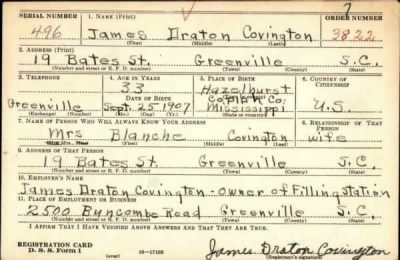 7
SERIAL NUMBER 1. NAME (Print) ORDER NUMBER
496 James Draton Covington 3822
(First) (Middle) (Last)
2. ADDRESS (Print)
19 Bates St. Greenville S.C.
(Number and street or R. F. D. number) (Town) (County) (State)
3. TELEPHONE 4. AGE IN YEARS 5. PLACE OF BIRTH 6. COUNTRY OF CITIZENSHIP
33 Hazelhurst
DATE OF BIRTH Copiah Co:
Greenville Sept. 25 1907 Mississippi U.S.
(Exchange) (Number) (Mo.) (Day) (Yr.) (State or country)
7. NAME OF PERSON WHO WILL ALWAYS KNOW YOUR ADDRESS 8. RELATIONSHIP OF THAT PERSON
Mrs Blanche Covington wife
(Mr., Mrs., Miss) (First) (Middle) (Last)
9. ADDRESS OF THAT PERSON
19 Bates St. Greenville S.C.
(Number and street or R. F. D. number) (Town) (County) (State)
10. EMPLOYER'S NAME
James Draton Covington - owner of Filling station
11. PLACE OF EMPLOYMENT OR BUSINESS
2500 Buncombe Road Greenville S.C.
(Number and street or R. F. D. number) (Town) (County) (State)
I AFFIRM THAT I HAVE VERIFIED ABOVE ANSWERS AND THAT THEY ARE TRUE.
REGISTRATION CARD
D. S. S. Form 1 (over) 16—17105 James Draton Covington
(Registrant's signature)